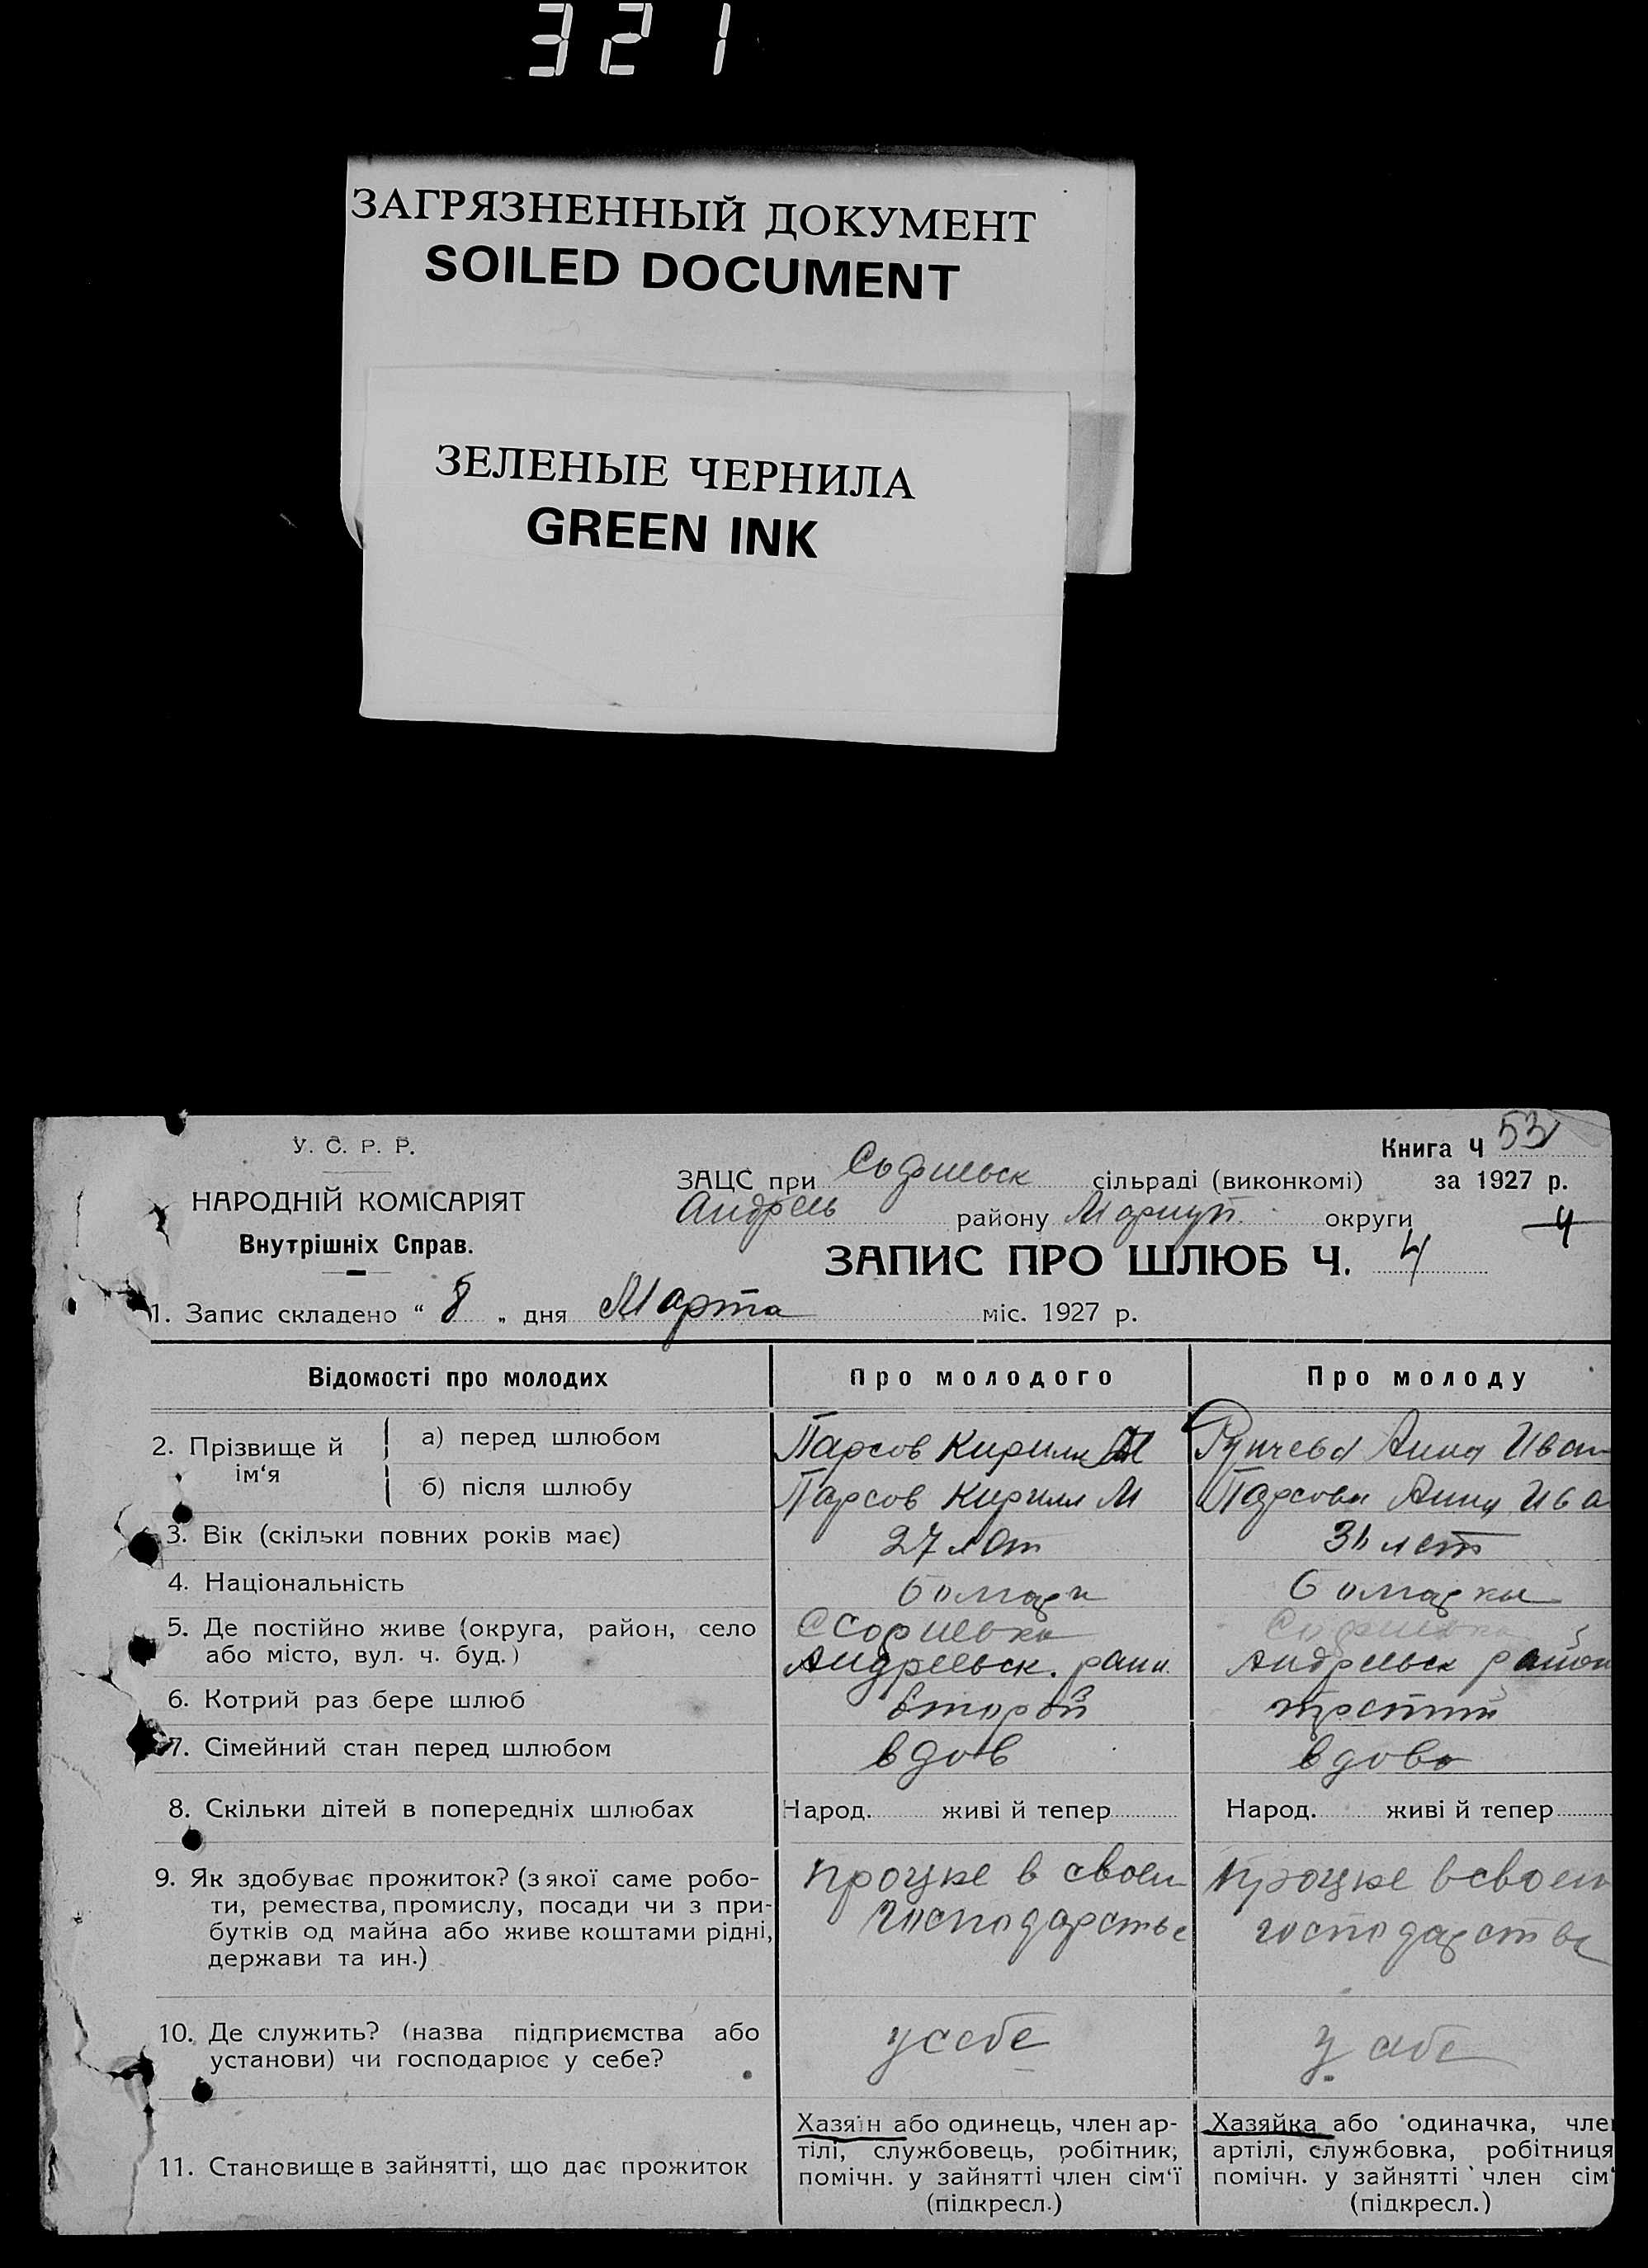 321
ЗАГРЯЗНЕННЫЙ ДОКУМЕНТ
SOILED DOCUMENT
ЗЕЛЕНЫЕ ЧЕРНИЛА
GREEN INK
У. С. Р. Р.
НАРОДНІЙ КОМІСАРІЯТ
Внутрішніх Справ.
Книга Ч 53
ЗАЦС при Софиевск сільраді (виконкомі) за 1927 р.
Андреев району Мариуп. округи 4
ЗАПИС ПРО ШЛЮБ Ч. 4
1. Запис складено “ 8 „ дня Марта міс. 1927 р.
Відомості про молодих
Про молодого
Про молоду
2. Прізвище й ім‘я
а) перед шлюбом
Парсов Кирилл М
Анна Иван
б) після шлюбу
Парсов Кирилл М
Парсова Анна Ива
3. Вік (скільки повних років має)
27 лет
лет
4. Національність
болгари
болгарка
5. Де постійно живе (округа, район, село
або місто, вул. ч. буд.)
С Софиевка
Андреевск. райн.
Софиевка
Андреевск район
6. Котрий раз бере шлюб
второй
третий
7. Сімейний стан перед шлюбом
вдов
вдова
8. Скільки дітей в попередніх шлюбах
Народ. живі й тепер
Народ. живі й тепер
9. Як здобуває прожиток? (з якої саме робо-
ти, ремества, промислу, посади чи з при-
бутків од майна або живе коштами рідні,
держави та ин.)
працюе в своем
господарстве
працюе в своем
господарстве
10. Де служить? (назва підприємства або
установи) чи господарює у себе?
у себе
у себе
11. Становище в зайнятті, що дає прожиток
Хазяїн або одинець, член ар-
тілі, службовець, робітник,
помічн. у зайнятті член сім‘ї
(підкресл.)
Хазяйка або одиначка, член
артілі, службовка, робітниця
помічн. у зайнятті член сім‘
(підкресл.)